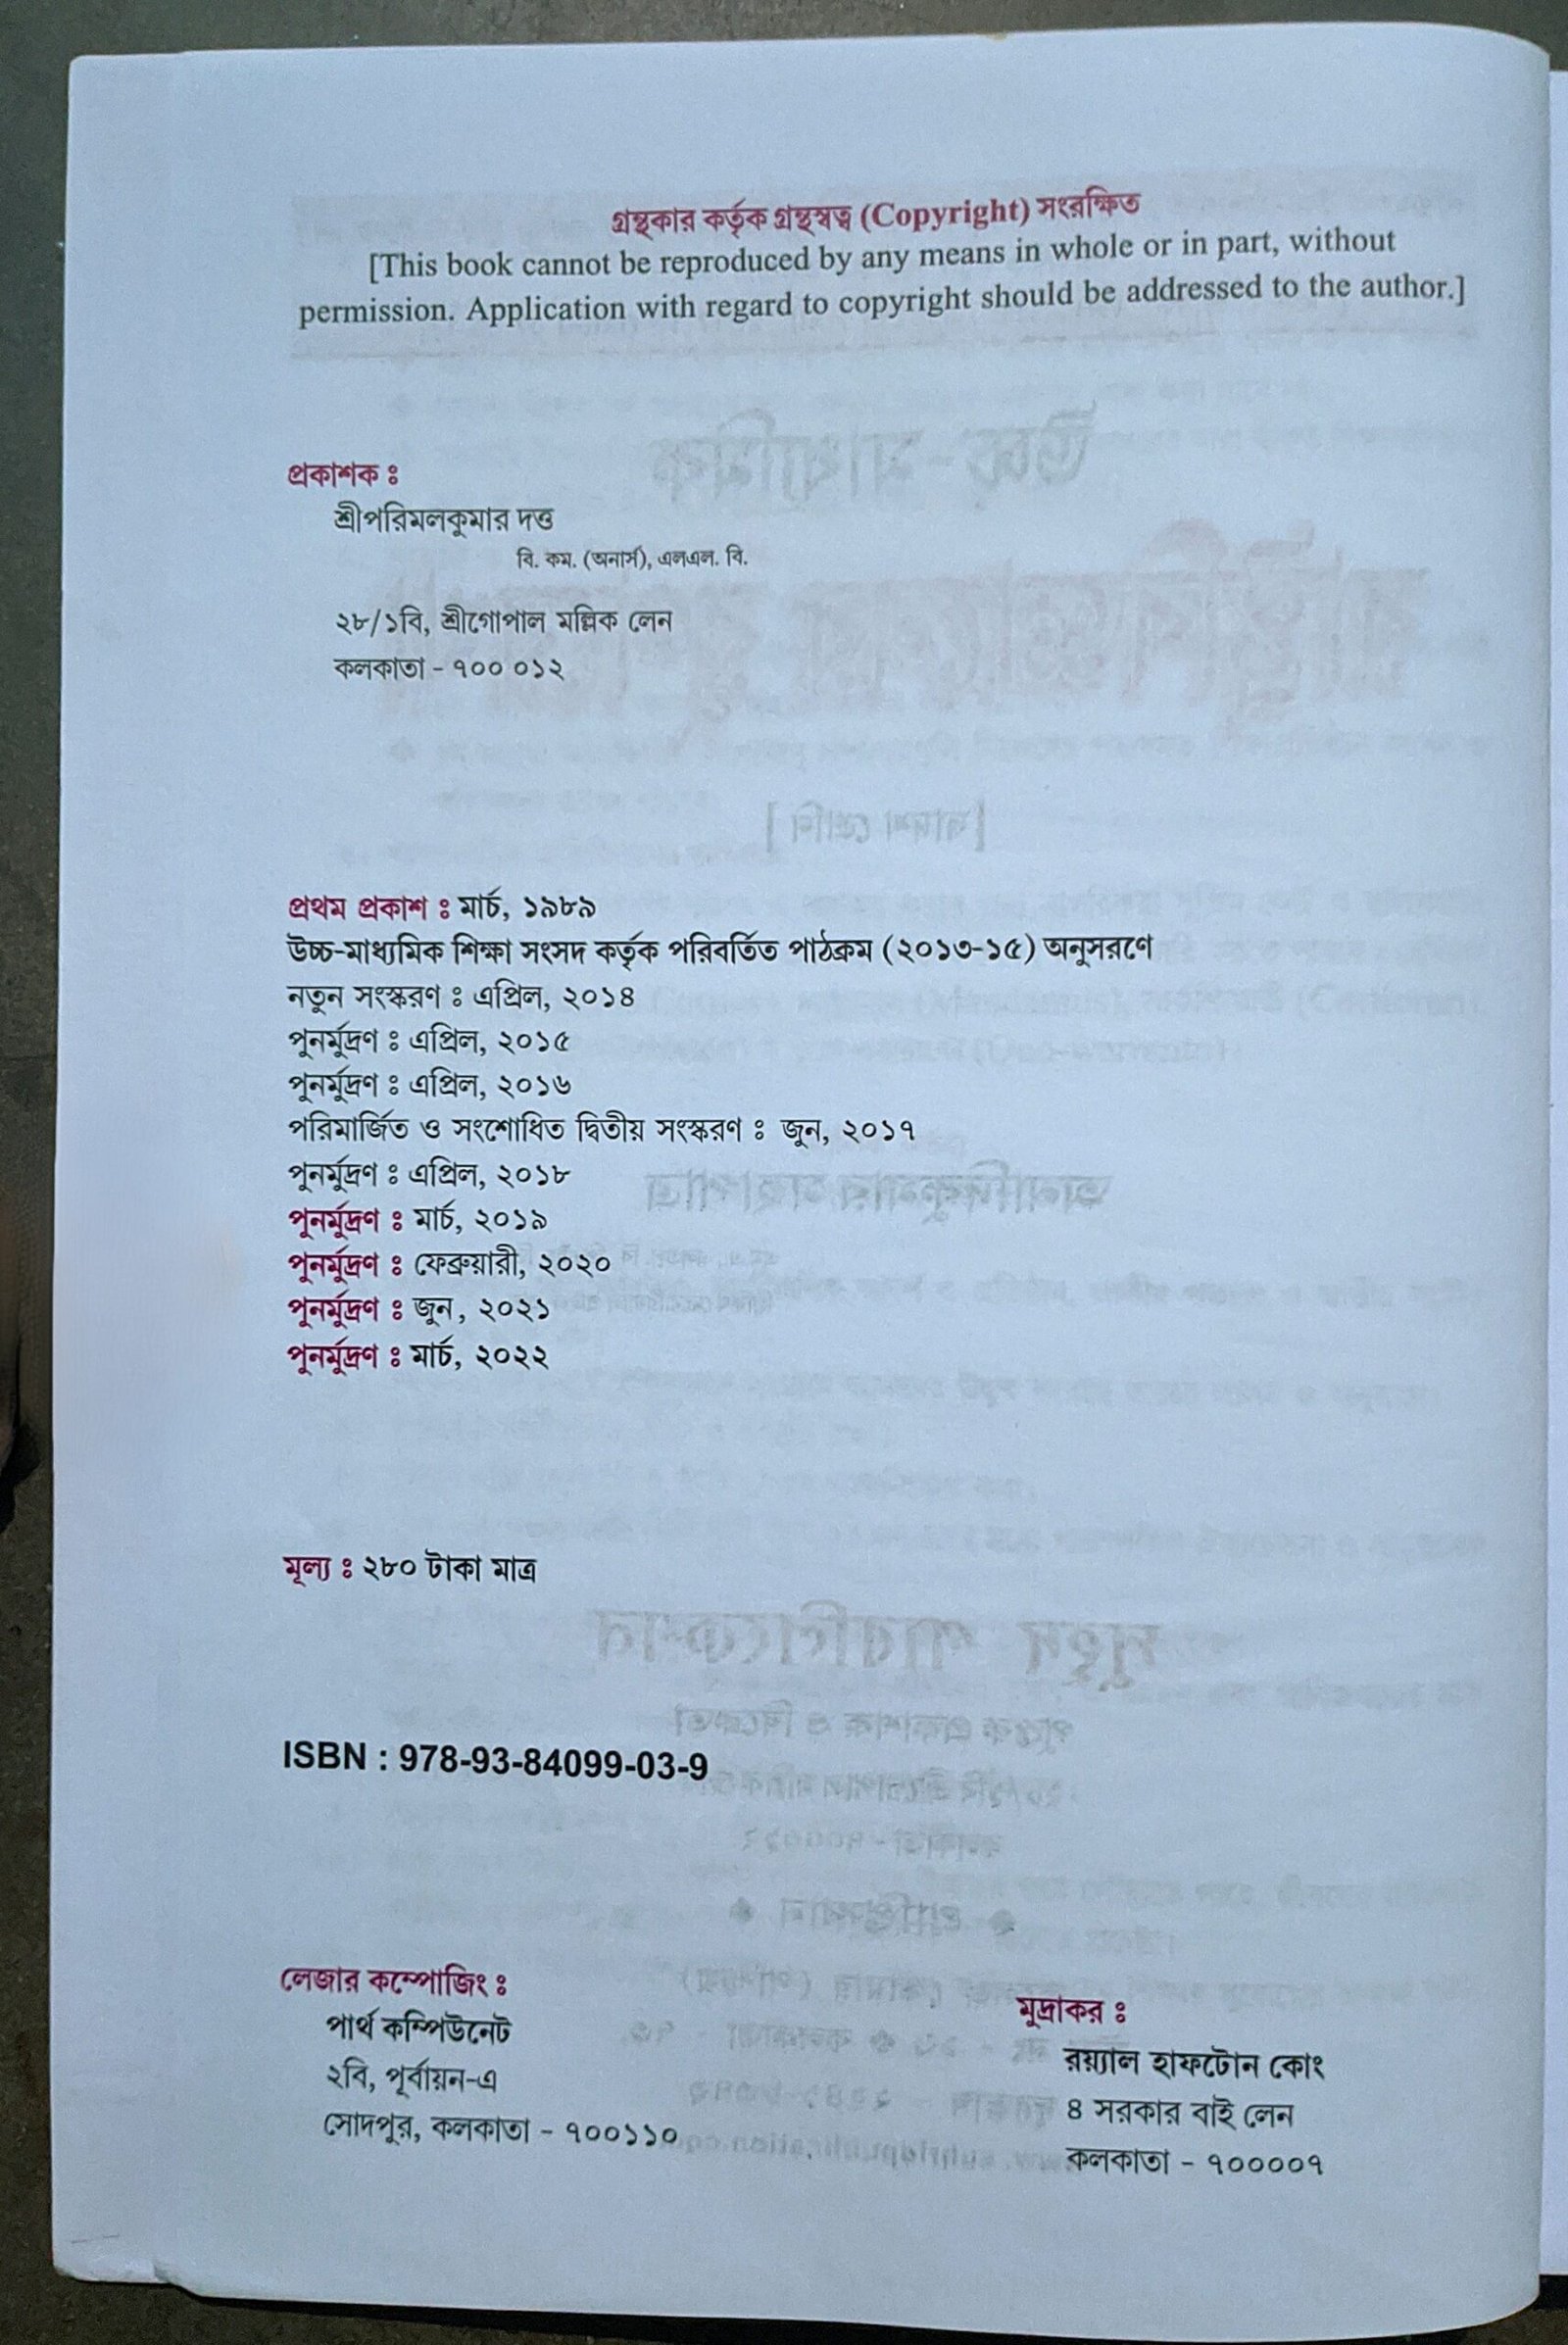 গ্রন্থকার কর্তৃক গ্রন্থস্বত্ব (Copyright) সংরক্ষিত
[This book cannot be reproduced by any means in whole or in part, without
permission. Application with regard to copyright should be addressed to the author.]
প্রকাশক ঃ
শ্রীপরিমলকুমার দত্ত
বি. কম. (অনার্স), এলএল. বি.
২৮/১বি, শ্রীগোপাল মল্লিক লেন
কলকাতা - ৭০০ ০১২
প্রথম প্রকাশ ঃ মার্চ, ১৯৮৯
উচ্চ-মাধ্যমিক শিক্ষা সংসদ কর্তৃক পরিবর্তিত পাঠক্রম (২০১৩-১৫) অনুসরণে
নতুন সংস্করণ ঃ এপ্রিল, ২০১৪
পুনর্মুদ্রণ ঃ এপ্রিল, ২০১৫
পুনর্মুদ্রণ ঃ এপ্রিল, ২০১৬
পরিমার্জিত ও সংশোধিত দ্বিতীয় সংস্করণ ঃ জুন, ২০১৭
পুনর্মুদ্রণ ঃ এপ্রিল, ২০১৮
পুনর্মুদ্রণ ঃ মার্চ, ২০১৯
পুনর্মুদ্রণ ঃ ফেব্রুয়ারী, ২০২০
পুনর্মুদ্রণ ঃ জুন, ২০২১
পুনর্মুদ্রণ ঃ মার্চ, ২০২২
মূল্য ঃ ২৮০ টাকা মাত্র
ISBN : 978-93-84099-03-9
লেজার কম্পোজিং ঃ
পার্থ কম্পিউনেট
২বি, পূর্বায়ন-এ
সোদপুর, কলকাতা - ৭০০১১০
মুদ্রাকর ঃ
রয়্যাল হাফটোন কোং
৪ সরকার বাই লেন
কলকাতা - ৭০০০০৭